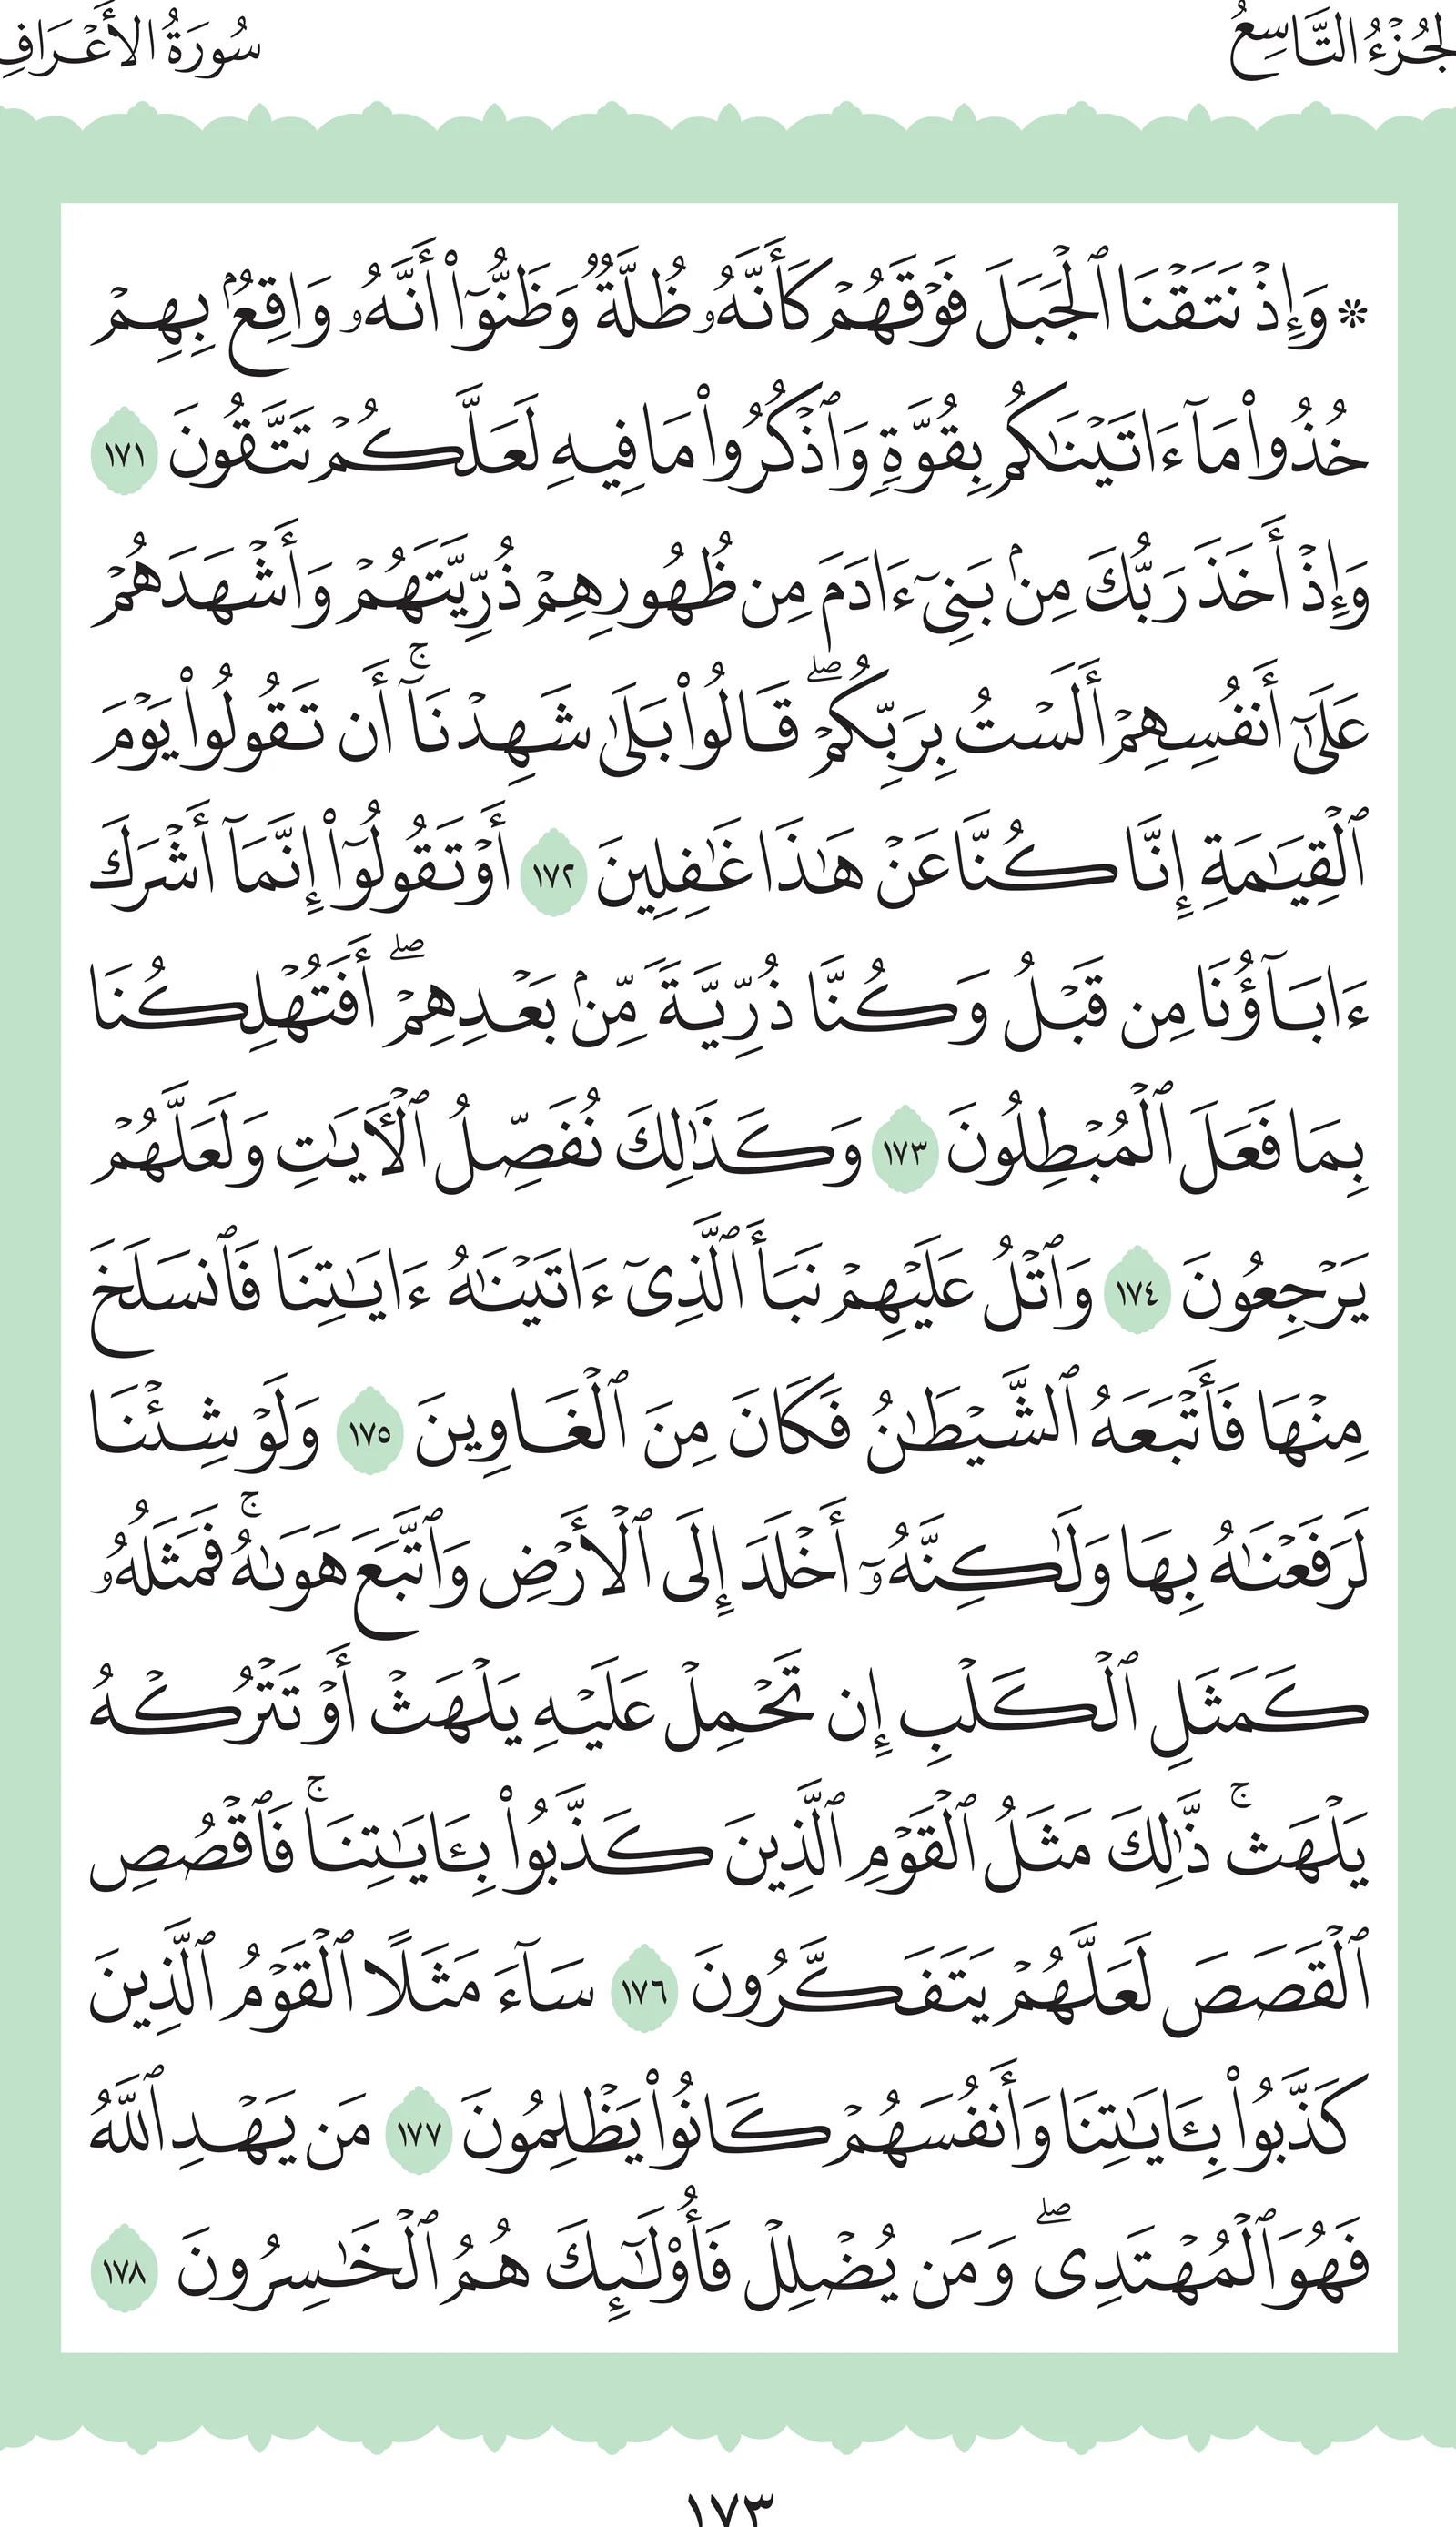 الجُزْءُ التَّاسِعُ
سُورَةُ الأَعْرَافِ
۞ وَإِذْ نَتَقْنَا ٱلْجَبَلَ فَوْقَهُمْ كَأَنَّهُۥ ظُلَّةٌ وَظَنُّوٓا۟ أَنَّهُۥ وَاقِعٌۢ بِهِمْ
خُذُوا۟ مَآ ءَاتَيْنَٰكُم بِقُوَّةٍ وَٱذْكُرُوا۟ مَا فِيهِ لَعَلَّكُمْ تَتَّقُونَ ١٧١
وَإِذْ أَخَذَ رَبُّكَ مِنۢ بَنِىٓ ءَادَمَ مِن ظُهُورِهِمْ ذُرِّيَّتَهُمْ وَأَشْهَدَهُمْ
عَلَىٰٓ أَنفُسِهِمْ أَلَسْتُ بِرَبِّكُمْ ۖ قَالُوا۟ بَلَىٰ شَهِدْنَآ ۚ أَن تَقُولُوا۟ يَوْمَ
ٱلْقِيَٰمَةِ إِنَّا كُنَّا عَنْ هَٰذَا غَٰفِلِينَ ١٧٢ أَوْ تَقُولُوٓا۟ إِنَّمَآ أَشْرَكَ
ءَابَآؤُنَا مِن قَبْلُ وَكُنَّا ذُرِّيَّةً مِّنۢ بَعْدِهِمْ ۖ أَفَتُهْلِكُنَا
بِمَا فَعَلَ ٱلْمُبْطِلُونَ ١٧٣ وَكَذَٰلِكَ نُفَصِّلُ ٱلْءَايَٰتِ وَلَعَلَّهُمْ
يَرْجِعُونَ ١٧٤ وَٱتْلُ عَلَيْهِمْ نَبَأَ ٱلَّذِىٓ ءَاتَيْنَٰهُ ءَايَٰتِنَا فَٱنسَلَخَ
مِنْهَا فَأَتْبَعَهُ ٱلشَّيْطَٰنُ فَكَانَ مِنَ ٱلْغَاوِينَ ١٧٥ وَلَوْ شِئْنَا
لَرَفَعْنَٰهُ بِهَا وَلَٰكِنَّهُۥٓ أَخْلَدَ إِلَى ٱلْأَرْضِ وَٱتَّبَعَ هَوَىٰهُ ۚ فَمَثَلُهُۥ
كَمَثَلِ ٱلْكَلْبِ إِن تَحْمِلْ عَلَيْهِ يَلْهَثْ أَوْ تَتْرُكْهُ
يَلْهَث ۚ ذَّٰلِكَ مَثَلُ ٱلْقَوْمِ ٱلَّذِينَ كَذَّبُوا۟ بِـَٔايَٰتِنَا ۚ فَٱقْصُصِ
ٱلْقَصَصَ لَعَلَّهُمْ يَتَفَكَّرُونَ ١٧٦ سَآءَ مَثَلًا ٱلْقَوْمُ ٱلَّذِينَ
كَذَّبُوا۟ بِـَٔايَٰتِنَا وَأَنفُسَهُمْ كَانُوا۟ يَظْلِمُونَ ١٧٧ مَن يَهْدِ ٱللَّهُ
فَهُوَ ٱلْمُهْتَدِى ۖ وَمَن يُضْلِلْ فَأُو۟لَٰٓئِكَ هُمُ ٱلْخَٰسِرُونَ ١٧٨
١٧٣